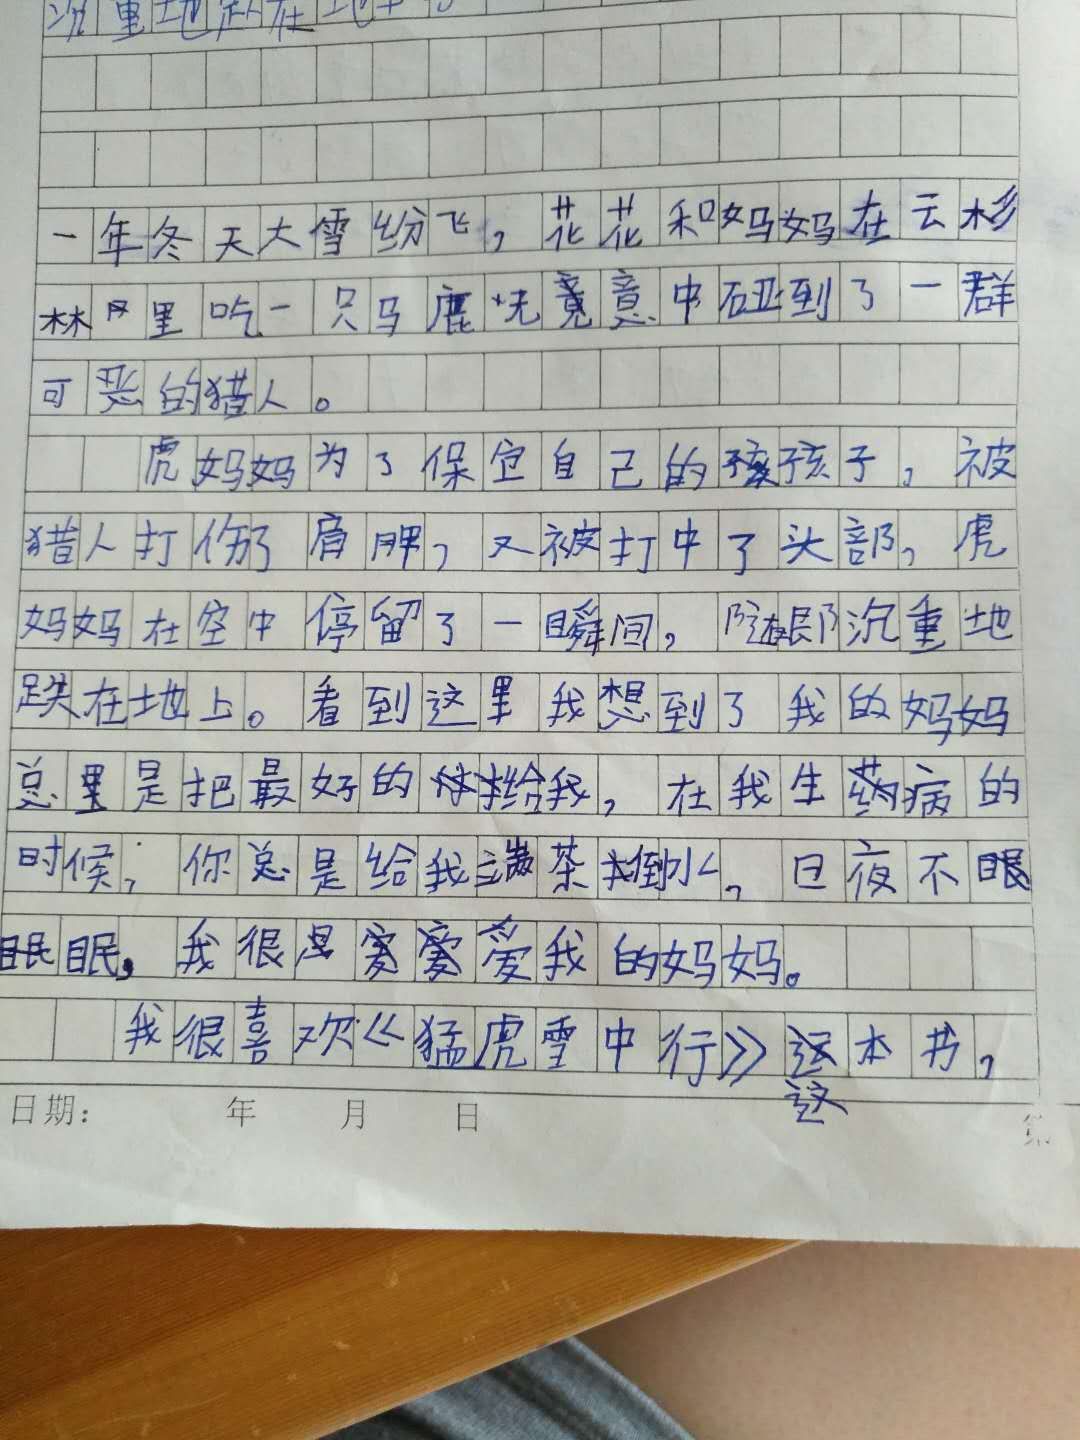 沉重地趴在地
一年冬天大雪纷飞，花花和妈妈在云杉
林里吃一只马鹿竟意中碰到了一群
可恶的猎人。
虎妈妈为了保宜自己的孩孩子，被
猎人打伤了肩胛，又被打中了头部，虎
妈妈在空中停留了一瞬间，随即沉重地
跌在地上。看到这里我想到了我的妈妈
总里是把最好的给我，在我生药病的
时候，你总是给我端茶倒水，日夜不眠
眠眠。我很是爱爱爱我的妈妈。
我很喜欢《猛虎雪中行》这本书，
这
日期： 年 月 日
第